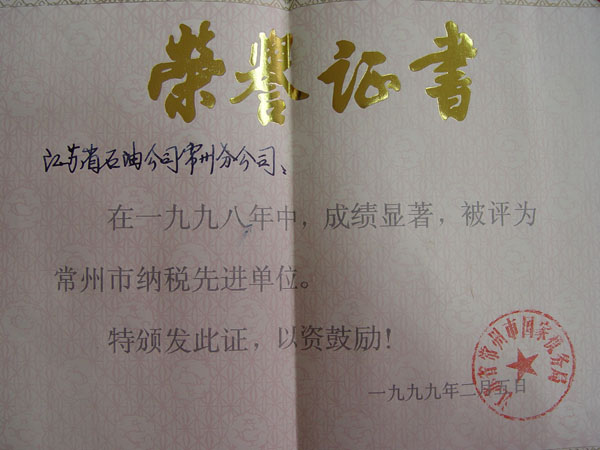 荣誉证书
江苏省石油公司常州分公司:
在一九九八年中，成绩显著，被评为
常州市纳税先进单位。
特颁发此证，以资鼓励！
江苏省常州市国家税务局
一九九九年二月五日